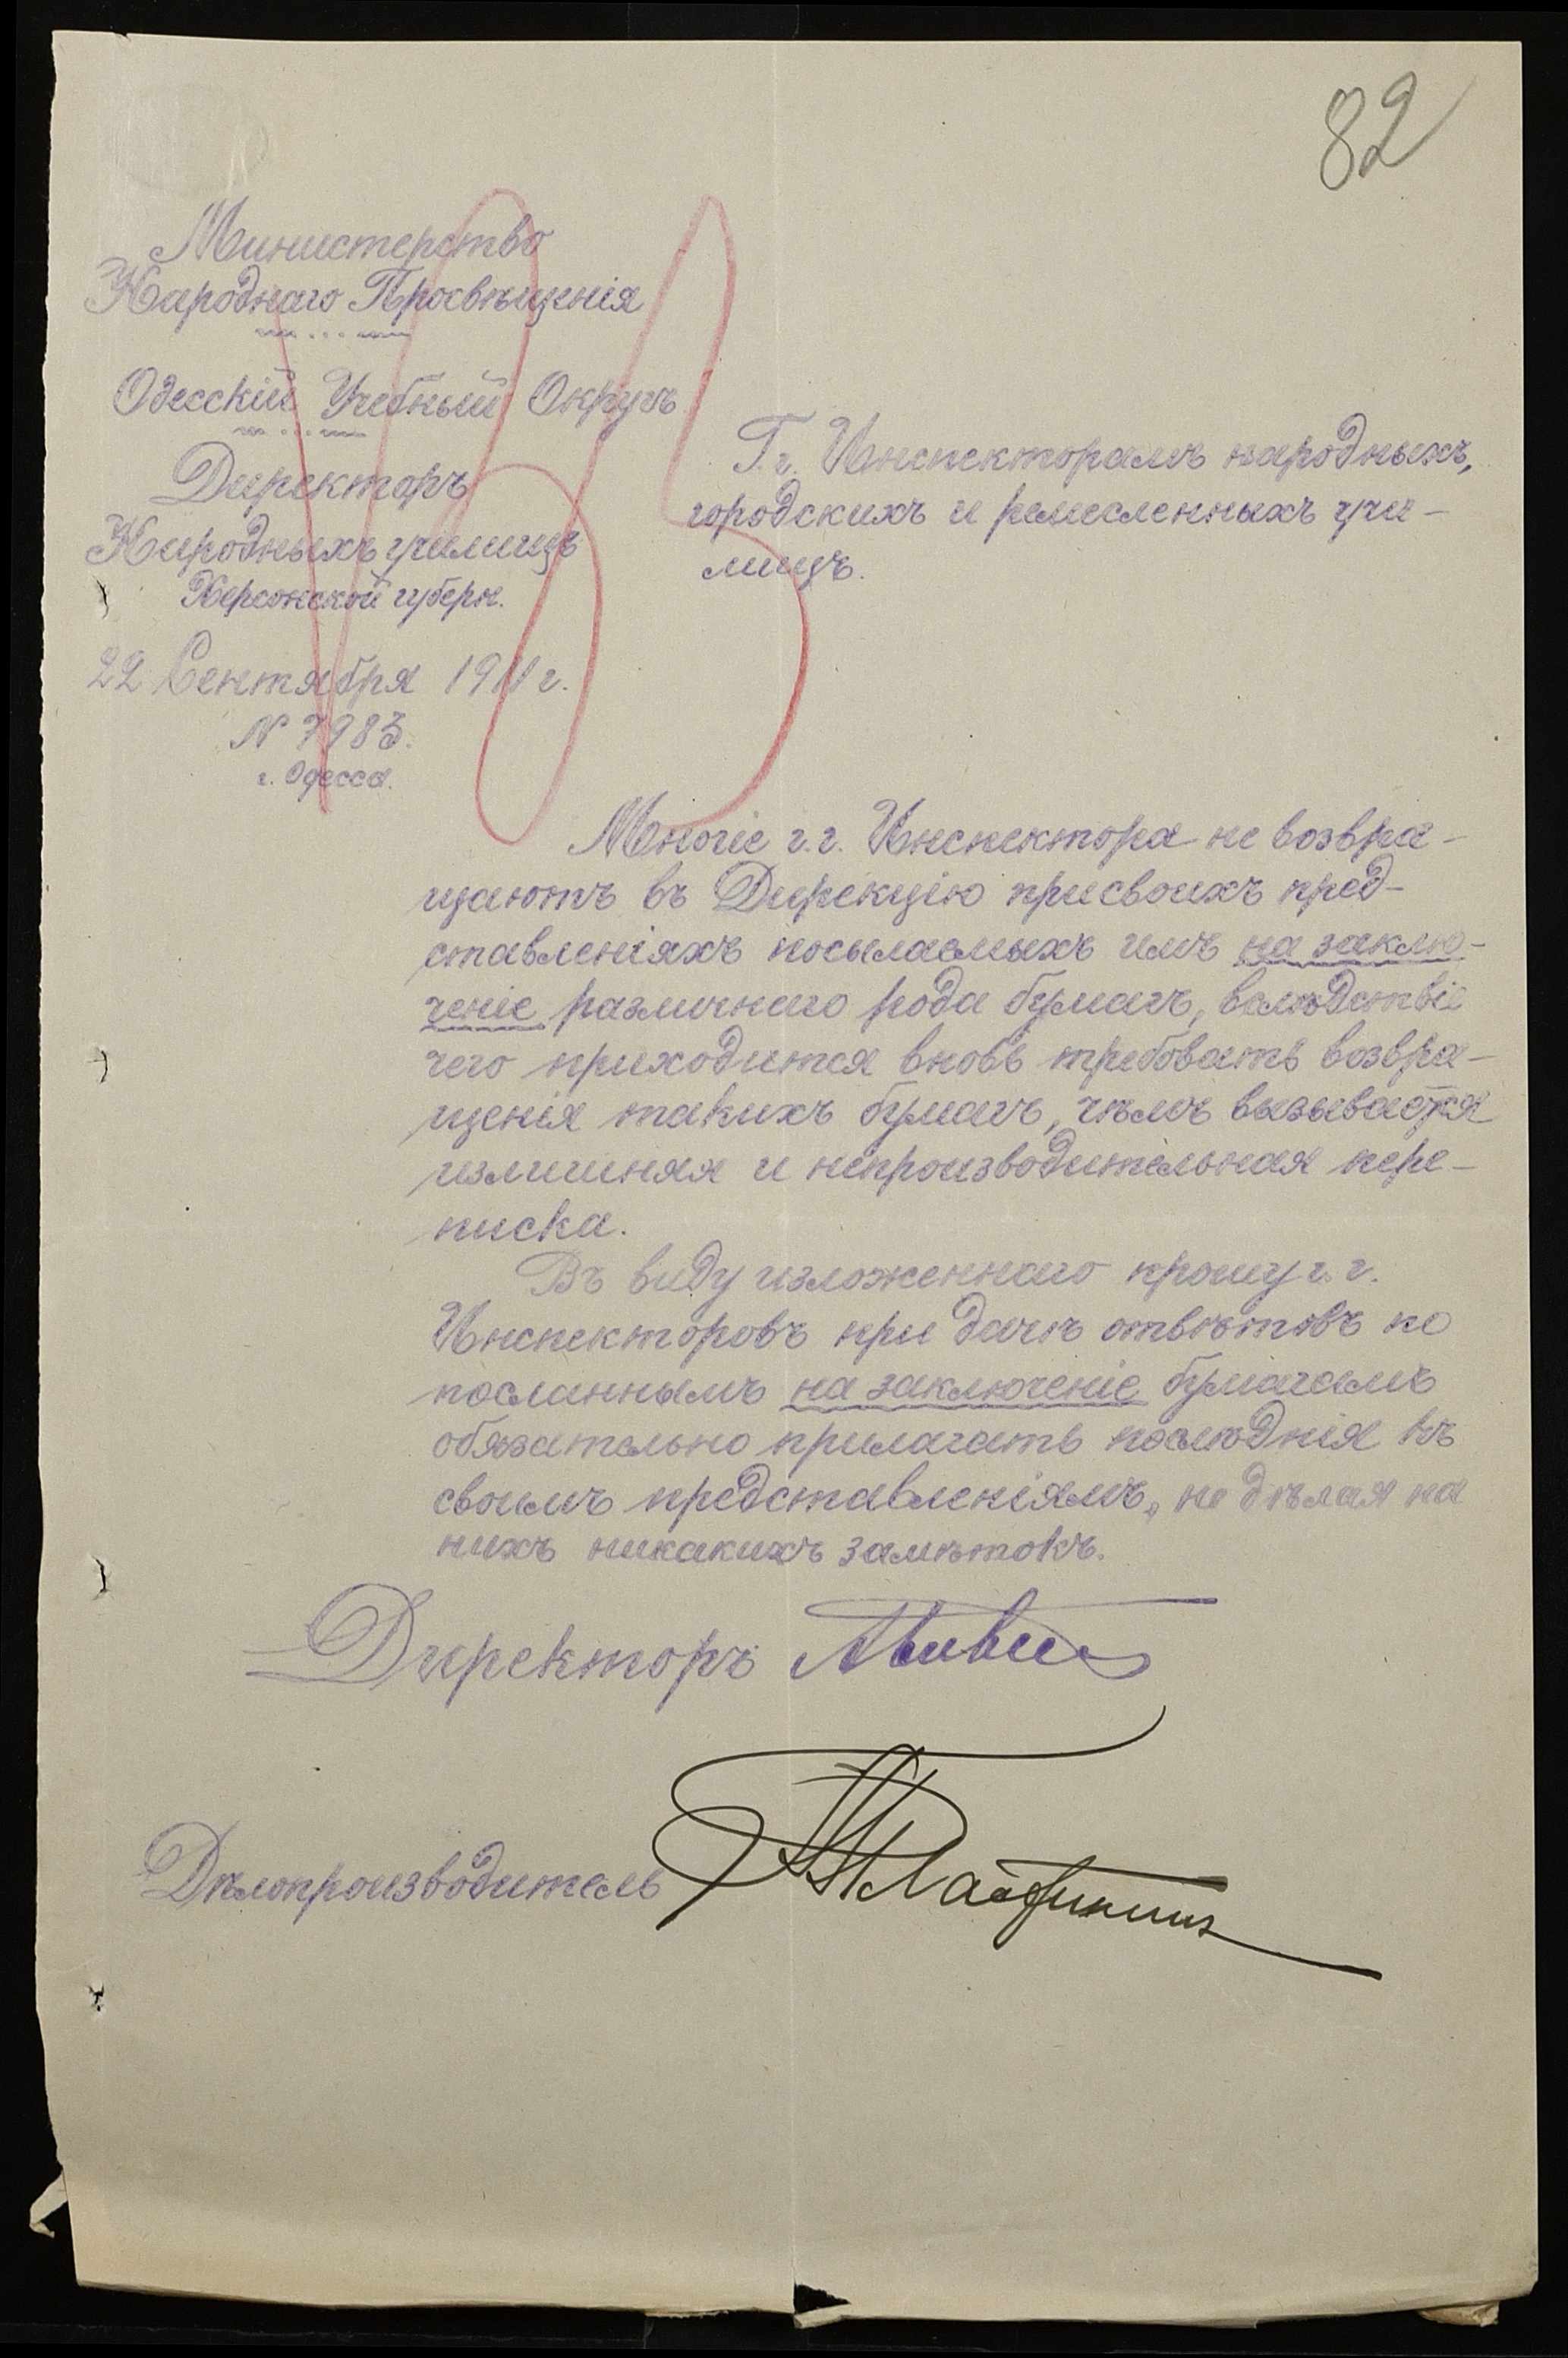 82
Министерство
Народнаго Просвѣщенія
Одесскій Учебный Округъ
Директоръ
Народныхъ училищъ
Херсонской губерн.
22 Сентября 1911 г.
N 7983.
г. Одесса.
Г.г. Инспекторамъ народныхъ,
городскихъ и ремесленныхъ учи-
лищъ.
Многіе г.г. Инспектора не возвра-
щаютъ въ Дирекцію при своихъ пред-
ставленіяхъ посылаемыхъ имъ на заклю-
ченіе различнаго рода бумагъ, вслѣдствіе
чего приходится вновь требовать возвра-
щенія такихъ бумагъ, чѣмъ вызывается
излишняя и непроизводительная пере-
писка.
Въ виду изложеннаго прошу г.г.
Инспекторовъ при дачѣ отвѣтовъ по
посланнымъ на заключеніе бумагамъ
обязательно прилагать послѣднія къ
своимъ представленіямъ, не дѣлая на
нихъ никакихъ замѣтокъ.
Директоръ
Дѣлопроизводитель